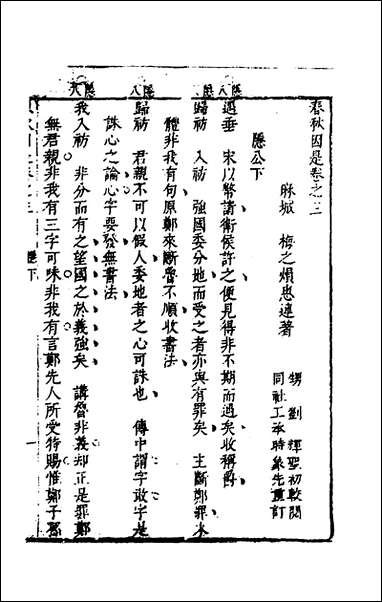 春秋因是卷之二
麻城 梅之熉惠連著
甥 劉 輝聖初較閱
同社工承時象先重訂
隱公下
隱八
遇垂 宋以幣請衛侯許之便見得非不期而遇矣收稱爵
隱八
歸祊 入祊 強國委分地而受之者亦與有罪矣 主斷鄭罪本
體非我有句原鄭來斷魯不順收書法
隱八
歸祊 君親不可以假人委地者之心可誅也 傳中謂字敢字是
誅心之論心字要發無書法
隱八
我入祊 非分而有之望國之於義強矣 講魯非義却正是罪鄭
無君親非我有三字可味非我有言鄭先人所受特賜惟鄭子
隱下
一